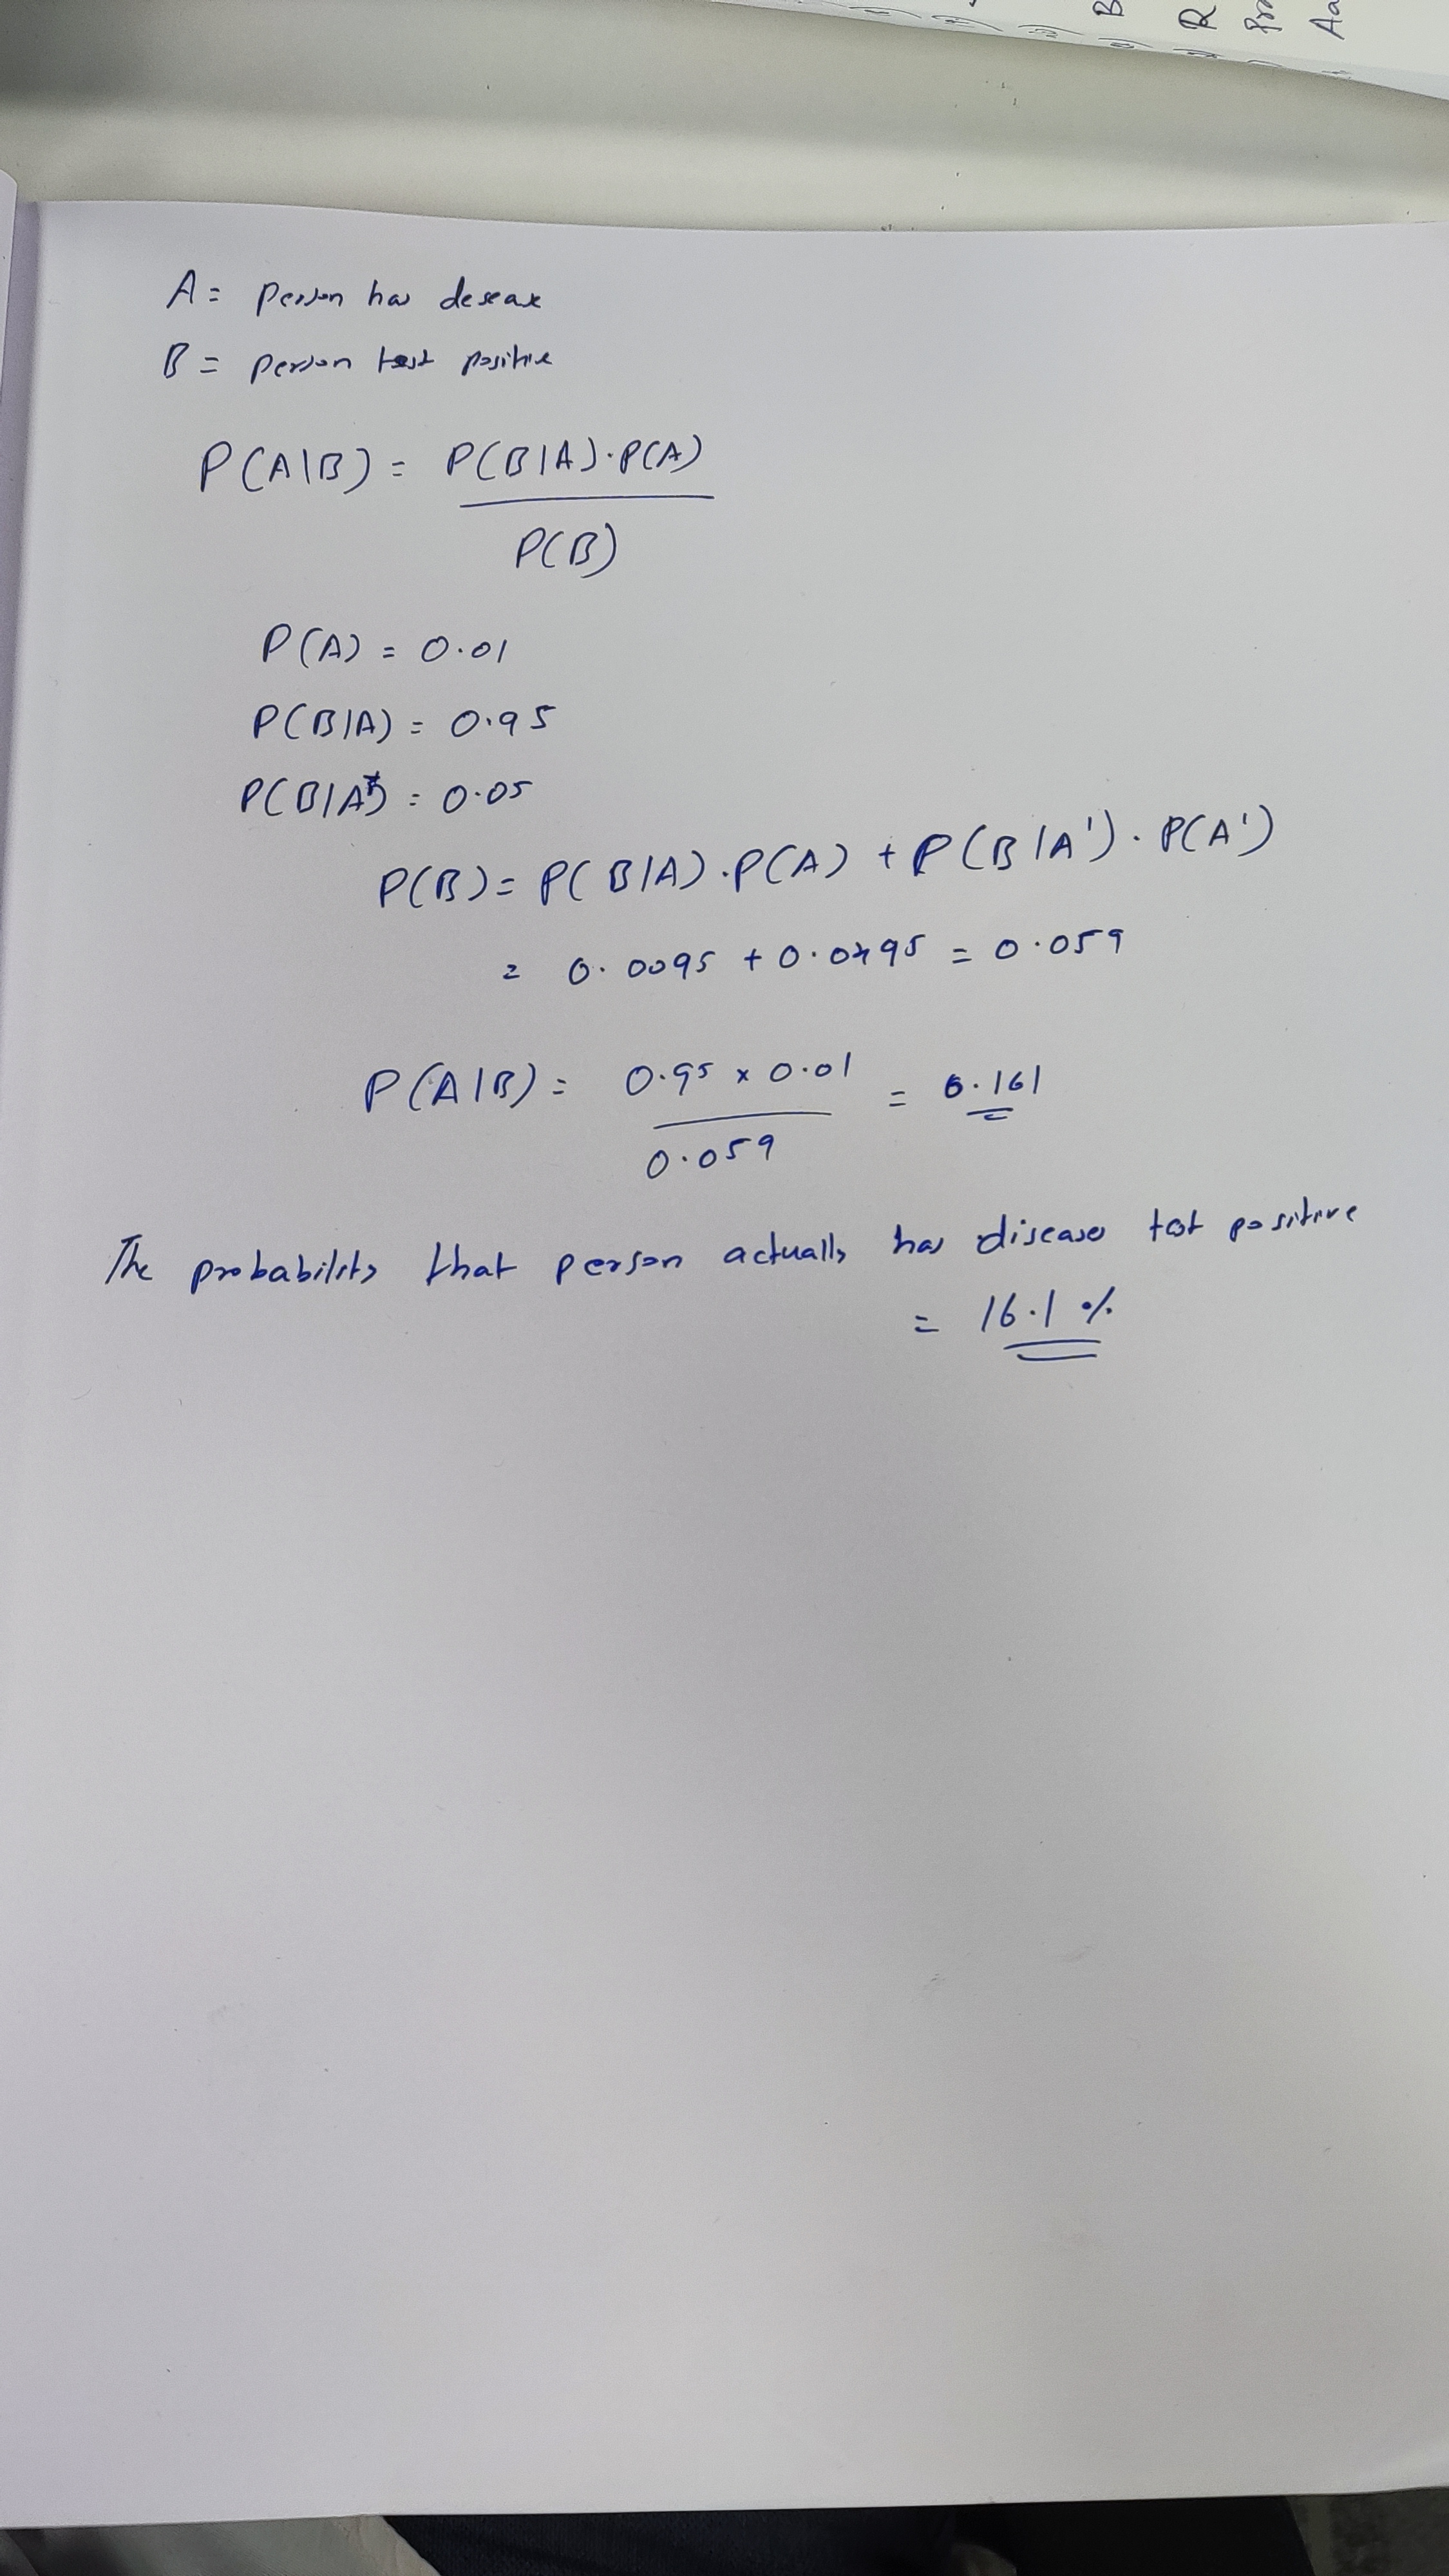 B
R
Aa
A = person has desease
B = person test positive
P(A|B) = P(B|A)·P(A)
P(B)
P(A) = 0.01
P(B|A) = 0.95
P(B|A') = 0.05
P(B) = P(B|A)·P(A) + P(B|A')·P(A')
= 0.0095 + 0.0495 = 0.059
P(A|B) = 0.95 x 0.01 = 0.161
0.059
The probability that person actually has disease test positive
= 16.1 %